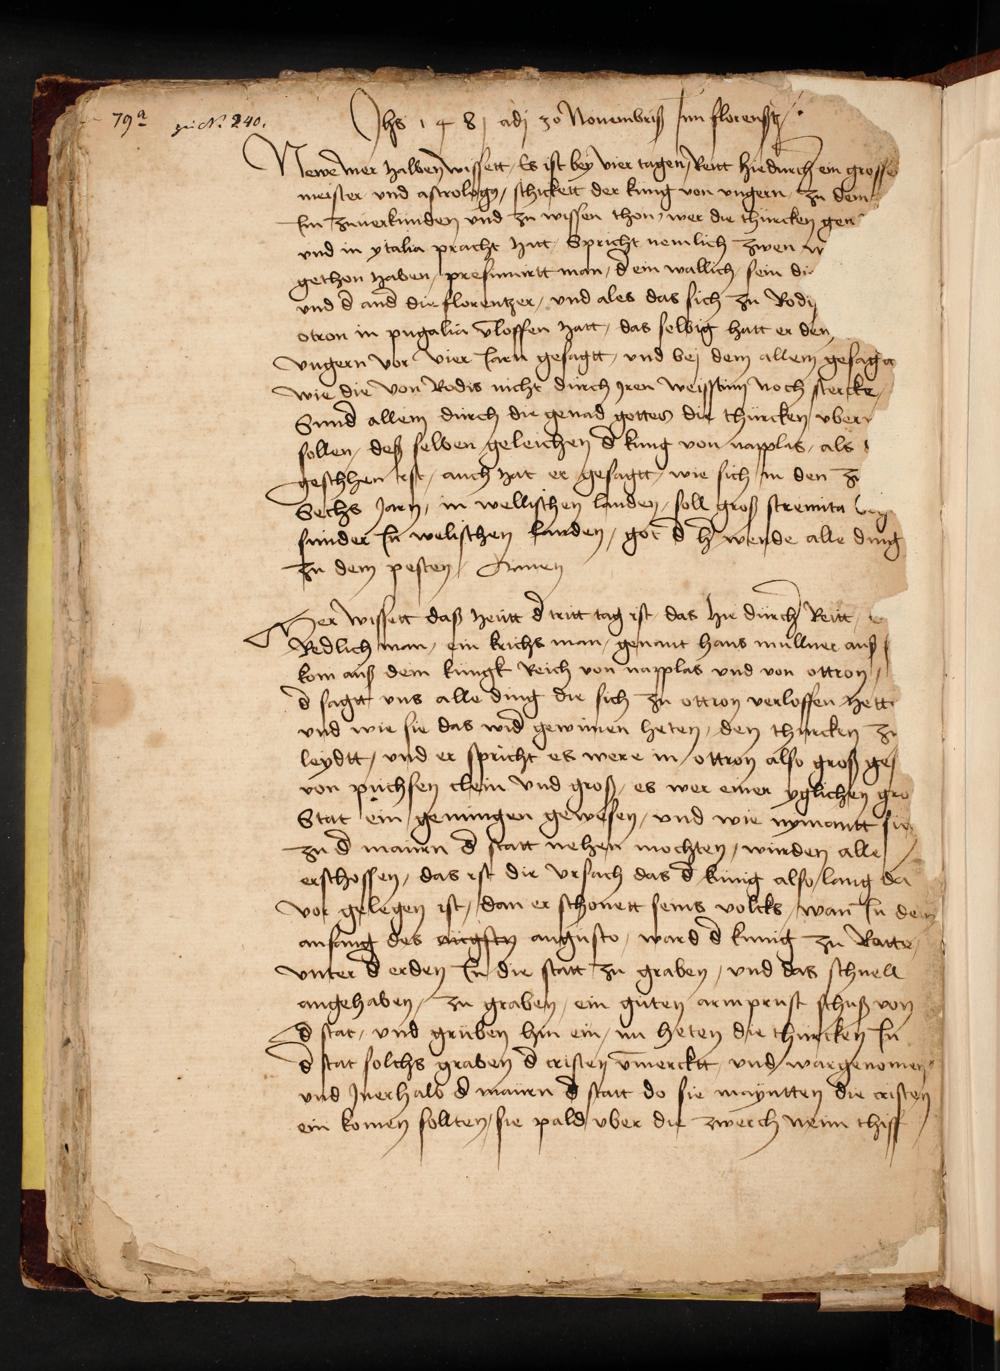 79a zu N. 240.
Jhs 1481 adj 30 Novembriß Jnn florenntz
Newe mer halben wissett, Es ist bey vier tagen, Reitt hiedurch ein grosse
meister und astrologus, schickett der kung von ungern, zu dem
Im zuverkunden und zu wissen thon, wer die thurcken gen
und in ytalia pracht hatt, Spricht nemlich zwen
gethon haben, presumirtt man, d ein wallich, sein di
und d and die florentzer, und ales das sich zu Rodis
otron in pugalia vloffen hatt, das selbig hatt er den
ungern vor vier Jarn gesagtt, und bej dem allem gesagtt
wie die von Rodis nicht durch jren Weysstum noch stercke,
Sund allein durch die genad gottes die thurcken uber
sollen, deß selben geleichen d kung von napplas, als
geschhen ist, auch hat er gesagtt, wie sich in den
Sechs Jarn, in wellischen landen, soll groß stremita
sunder In welischen landen, got d h wende alle ding
zu dem pesten, Amen
Mer wissett daß heutt d tritt tag ist, das hie durch Reitt,
Redlich man, ein krichs man, genant hans mullner auß
kom auß dem kungk Reich von napplas und von ottron,
d sagtt uns alle ding die sich zu ottron verloffen hett
und wie sie das wid gewinen heten, den thurcken zu
leydtt, und er spricht es were in ottron also groß ges
von puchsen clein und groß, es wer einer yglichen gro
Stat ein genungen gewesen, und wie nymantt sie
zu d maurn d statt nehen mochten, wurden alle
erschossen, das ist die ursach das d kunig also lang da
vor gelegen ist, dan er schonett seins volcks, wan In dem
anfang des augusto, ward d kunig zu Ratte,
unter d erden In die statt zu graben, und das schnell
angehaben, zu graben, ein guten armprust schuß von
d stat, und gruben hin ein, nu heten die thurcken In
d stat solchs graben d cristen vmercktt, und wargenomen
und Jnerhalb d maurn d statt do sie maynten die cristen
ein komen sollten, sie pald uber die zwerch neun thiff